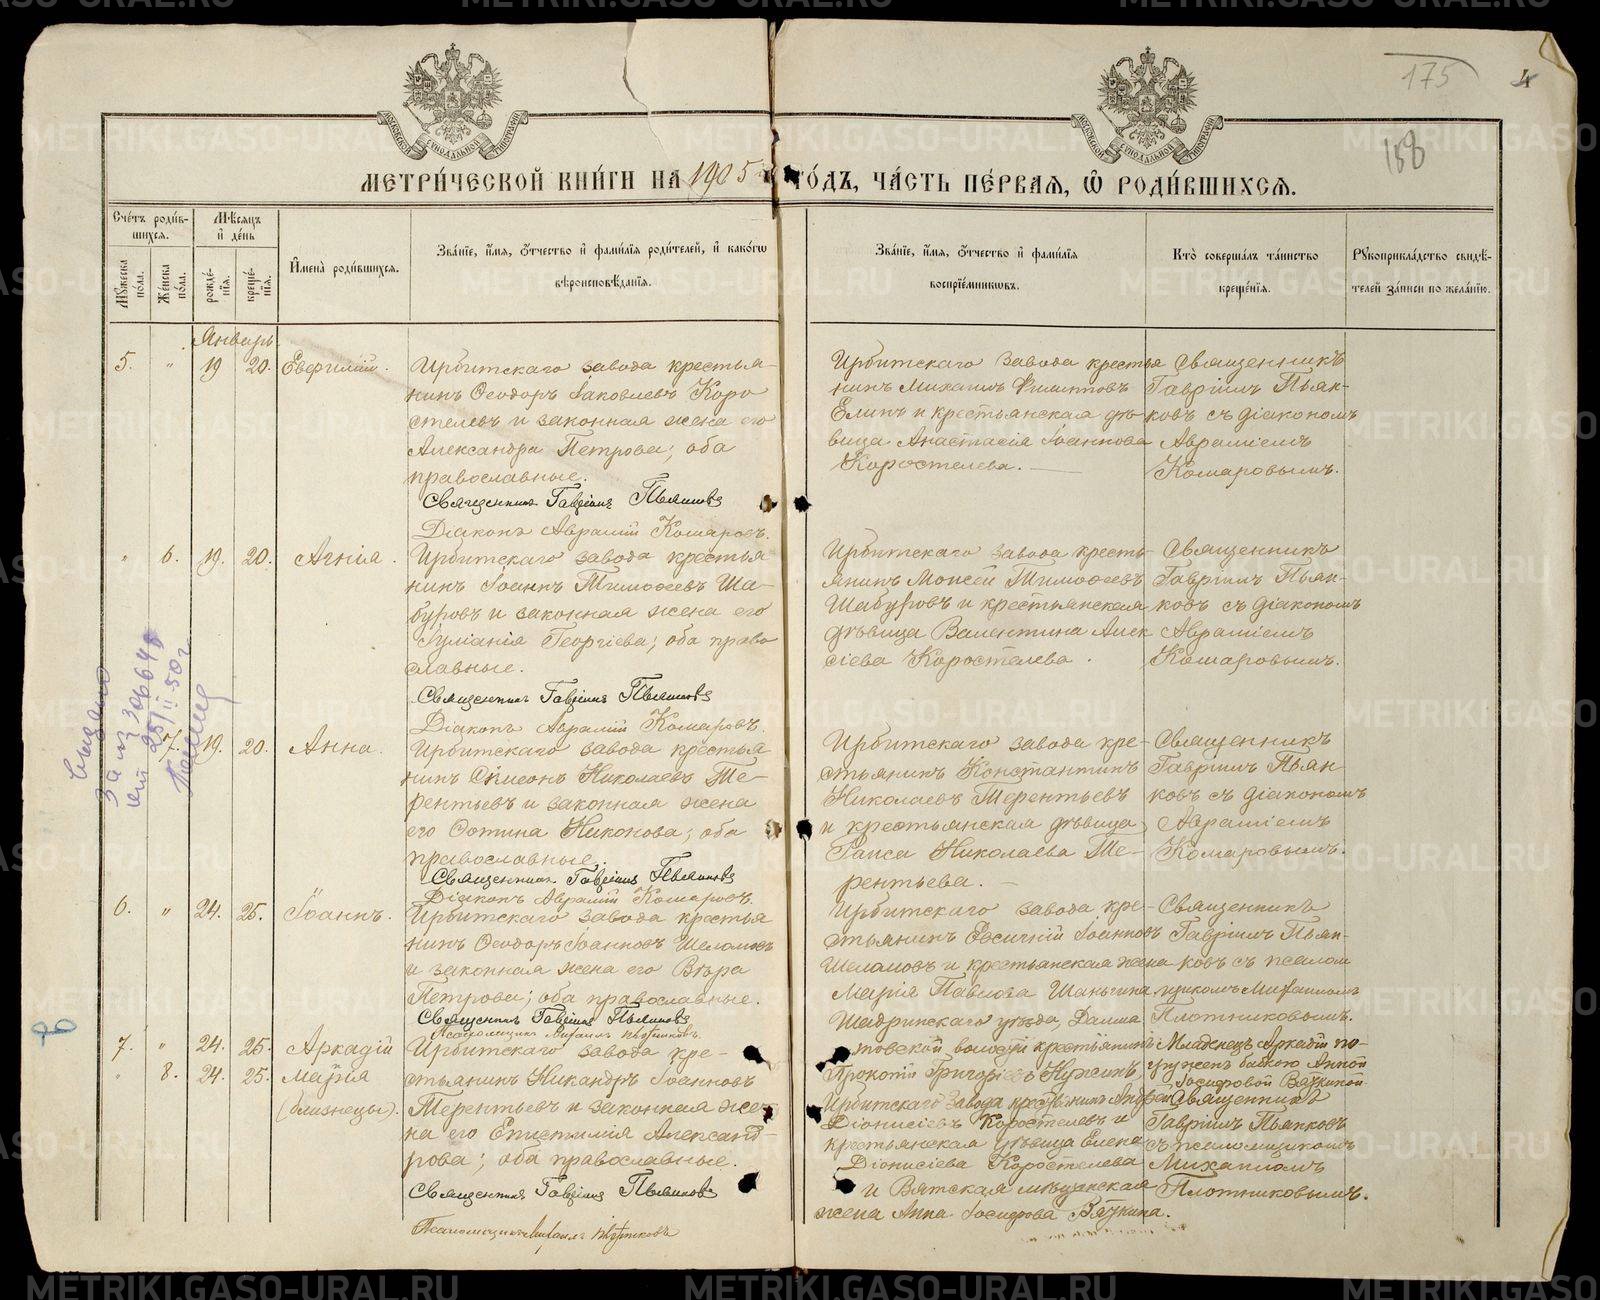 175
4
158
МЕТРИ́ЧЕСКОЙ КНИ́ГИ НА 1905 ГО́ДЪ, ЧА́СТЬ ПЕ́РВАЯ, Ѿ РОДИ́ВШИХСЯ.
Сче́тъ роди́в-
шихся.
Мꙋ́жеска по́ла.
Же́нска по́ла.
Мѣ́сяцъ
и҆ де́нь
рожде́-
нїя.
креще́-
нїя.
И҆мена̀ роди́вшихся.
Зва́нїе, и҆́мя, ѻ҆́тчество и҆ фами́лїя роди́телей, и҆ како́гѡ
вѣроисповѣ́данїя.
Зва́нїе, и҆́мя, ѻ҆́тчество и҆ фами́лїя
воспрїе́мникѡвъ.
Кто̀ соверша́лъ та́инство
креще́нїя.
Рꙋкоприкла́дство свидѣ́-
телей за́писи по жела́нїю.
Январь
5. " 19 20. Евфимій.
Ирбитскаго завода крестья-
нинъ Ѳеодоръ Іаковлевъ Коро
стелевъ и законная жена его
Александра Петрова; оба
православные.
Священникъ Гавріилъ Пьянковъ
Діаконъ Аврамій Комаровъ.
Ирбитскаго завода крестья
нинъ Михаилъ Филипповъ
Елинъ и крестьянская дѣ-
вица Анастасія Іоаннова
Коростелева.
Священникъ
Гавріилъ Пьян-
ковъ съ діакономъ
Авраміемъ
Комаровымъ.
" 6. 19. 20. Агнія.
Ирбитскаго завода крестья
нинъ Іоаннъ Тимофеевъ Ша-
буровъ и законная жена его
Іуліанія Георгіева; оба право
славные.
Священникъ Гавріилъ Пьянковъ
Діаконъ Аврамій Комаровъ.
Ирбитскаго завода кресть-
янинъ Моисей Тимофеевъ
Шабуровъ и крестьянская
дѣвица Валентина Алек
сіева Коростелева.
Священникъ
Гавріилъ Пьян-
ковъ съ діакономъ
Авраміемъ
Комаровымъ.
Выдано
7. 19. 20. Анна.
Ирбитскаго завода крестья
нинъ Симеонъ Николаевъ Те-
рентьевъ и законная жена
его Фотина Никонова; оба
православные.
Священникъ Гавріилъ Пьянковъ
Діаконъ Аврамій Комаровъ.
Ирбитскаго завода кре-
стьянинъ Константинъ
Николаевъ Терентьевъ
и крестьянская дѣвица
Раиса Николаева Те-
рентьева.
Священникъ
Гавріилъ Пьян
ковъ съ діакономъ
Авраміемъ
Комаровымъ.
6. " 24. 25. Іоаннъ.
Ирбитскаго завода крестья
нинъ Ѳеодоръ Іоанновъ Шеломовъ
и законная жена его Вѣра
Петрова; оба православные.
Священникъ Гавріилъ Пьянковъ
Псаломщикъ Михаилъ Плотниковъ
Ирбитскаго завода кре-
стьянинъ Евсигній Іоанновъ
Шеламовъ и крестьянская жена
Марія Павлова Шаньгина.
Священникъ
Гавріилъ Пьян-
ковъ съ псалом
щикомъ Михаиломъ
Плотниковымъ.
7. " 24. 25. Аркадій
" 8. 24. 25. Марія
(близнецы).
Ирбитскаго завода кре-
стьянинъ Никандръ Іоанновъ
Терентьевъ и законная же-
на его Епистимія Александ-
рова; оба православные.
Священникъ Гавріилъ Пьянковъ
Псаломщикъ Михаилъ Плотниковъ
Шадринскаго уѣзда, Далма
товской волости крестьянинъ
Прокопій Григорьевъ Нужинъ,
Ирбитскаго завода крестьянинъ Андрей
Діонисіевъ Коростелевъ и
крестьянская дѣвица Елена
Діонисіева Коростелева
и Вятская мѣщанская
жена Анна Іосифова Вяткина.
Младенецъ Аркадій по-
гружен бабкою Анной
Іосифовой Вяткиной.
Священникъ
Гавріилъ Пьянковъ
съ псаломщикомъ
Михаиломъ
Плотниковымъ.
METRIKI.GASO-URAL.RU